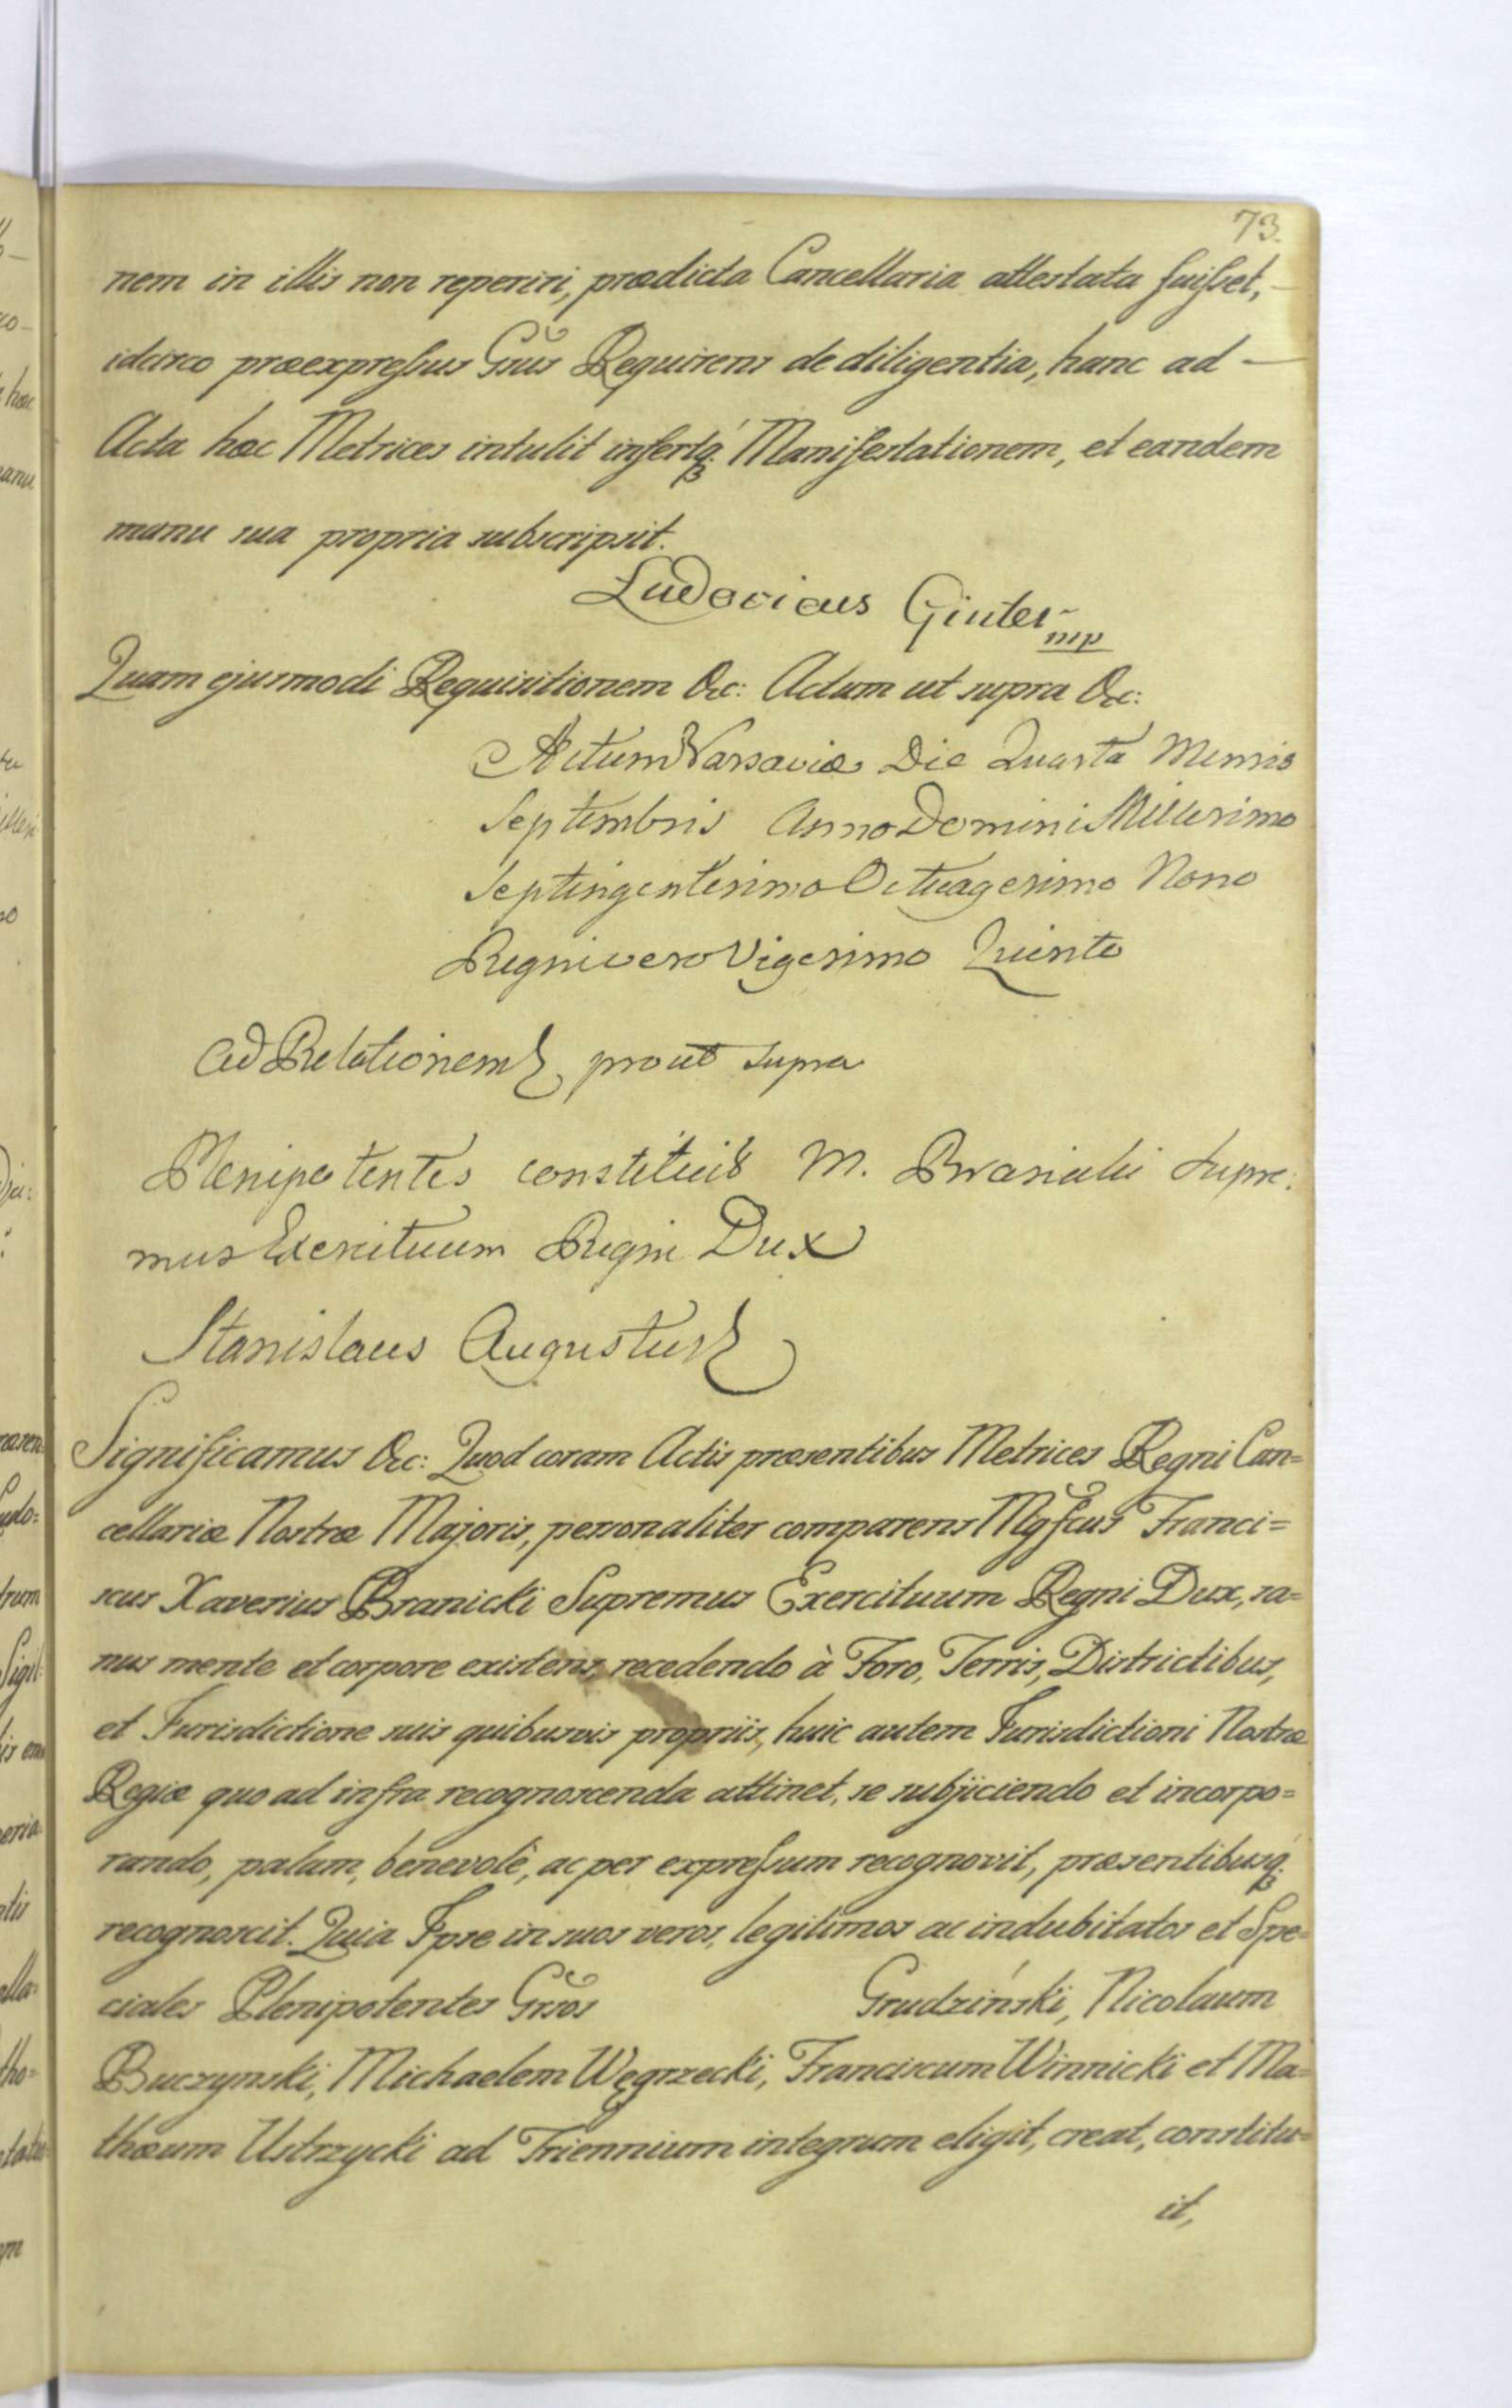 73.
nem in illis non reperiri, prædicta Cancellaria attestata fuisset,
idcirco præexpressus Gnus Requirens de diligentia, hanc ad
Acta hæc Metrices intulit insertq. Manifestationem, et eandem
manu sua propria subscripsit.
Ludovicus Ginter mp
Quam ejusmodi Requisitionem &c: Actum ut supra &c:
Actum Varsaviæ Die Quarta Mensis
Septembris Anno Domini Millesimo
Septingentesimo Octuagesimo Nono
Regni vero Vigesimo Quinto
Ad Relationem prout supra
Plenipotentes constituit M. Branicki Supre:
mus Exercituum Regni Dux
Stanislaus Augustus
Significamus &c: Quod coram Actis præsentibus Metrices Regni Can=
cellariæ Nostræ Majoris, personaliter comparens Mgfcus Franci=
scus Xaverius Branicki Supremus Exercituum Regni Dux, sa=
nus mente et corpore existens, recedendo à Foro, Terris, Districtibus,
et Jurisdictione suis quibusvis propriis, huic autem Jurisdictioni Nostræ
Regiæ quo ad infra recognoscenda attinet, se subjiciendo et incorpo=
rando, palam, benevolè, ac per expressum recognovit, præsentibusq.
recognoscit. Quia Ipse in suos veros, legitimos ac indubitatos et Spe=
ciales Plenipotentes Grsos Grudziński, Nicolaum
Buczynski, Michaelem Węgrzecki, Franciscum Winnicki et Ma=
thæum Ustrzycki ad Triennium integrum eligit, creat, constitu=
it,